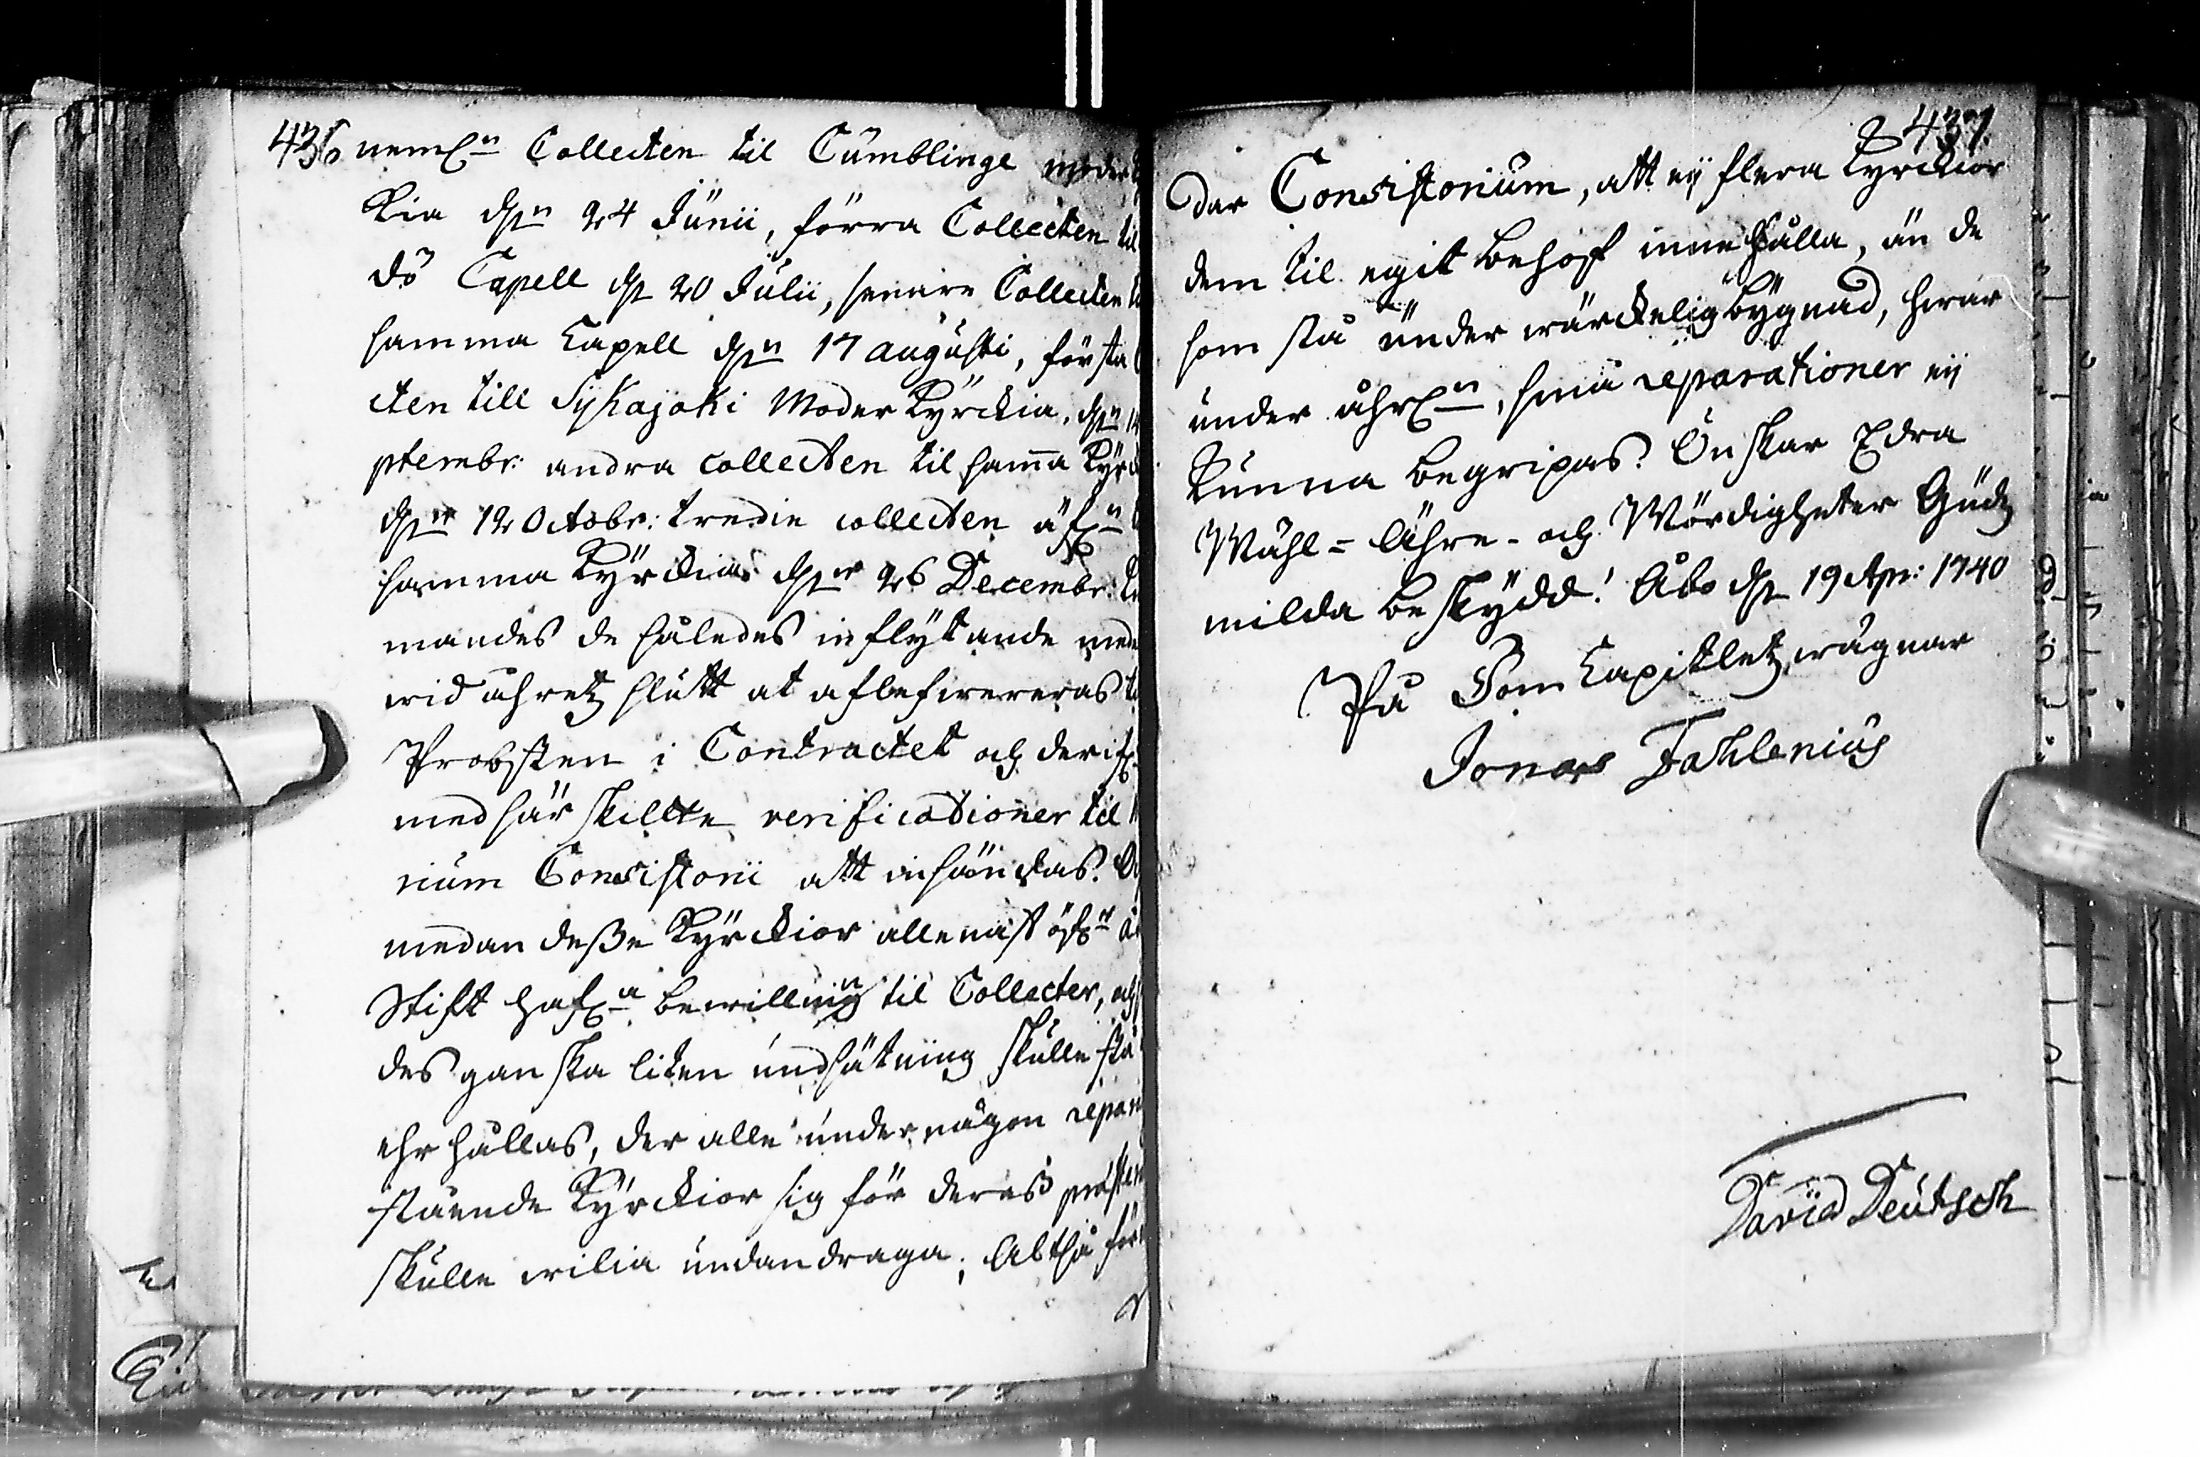 436 neml:n Collecten til Cumblinge moderk
kia d: 24 Junii, förra Collecten til
dö Capell d: 20 Julii, senare Collecten t
samma Capell d:n 17 augusti, första C
cten till Sijkajoki Moder kyrckia, d:n 14
ptembr: andra collecten til sama kyrc
d:n 12 Octobr: tredie collecten äf:n
samma kyrckia d:n 26 Decembr:
mandes de således in flytande med
wid åhretz slutt at aflefwereras t
Probsten i Contractet och der
med sär skillte verificationer til
rium Consistorii att insändas.
medan desse kyrckior allenast öf:r
Stift haf:a bewillning til Collecter, och
des gan ska liten undsätning skulle
ehr hållas, der alle under någon repar
stående kyrckior sig för deras
skulle wilia undandraga; Altså för
437.
dar Consistorium, att ej flera kyrckior
dem til egit behof inne hålla, än de
som stå under wärckelig bygnad, hwar
under åhrl:n, små reparationer ej
kunna begripas. Önskar Edra
Wähl= Ähre- och Wördigheter Gudz
milda beskydd! Åbo d: 19 Apr: 1740
På Dom Capitletz wägnar
Jonas Fahlenius
David Deutsch